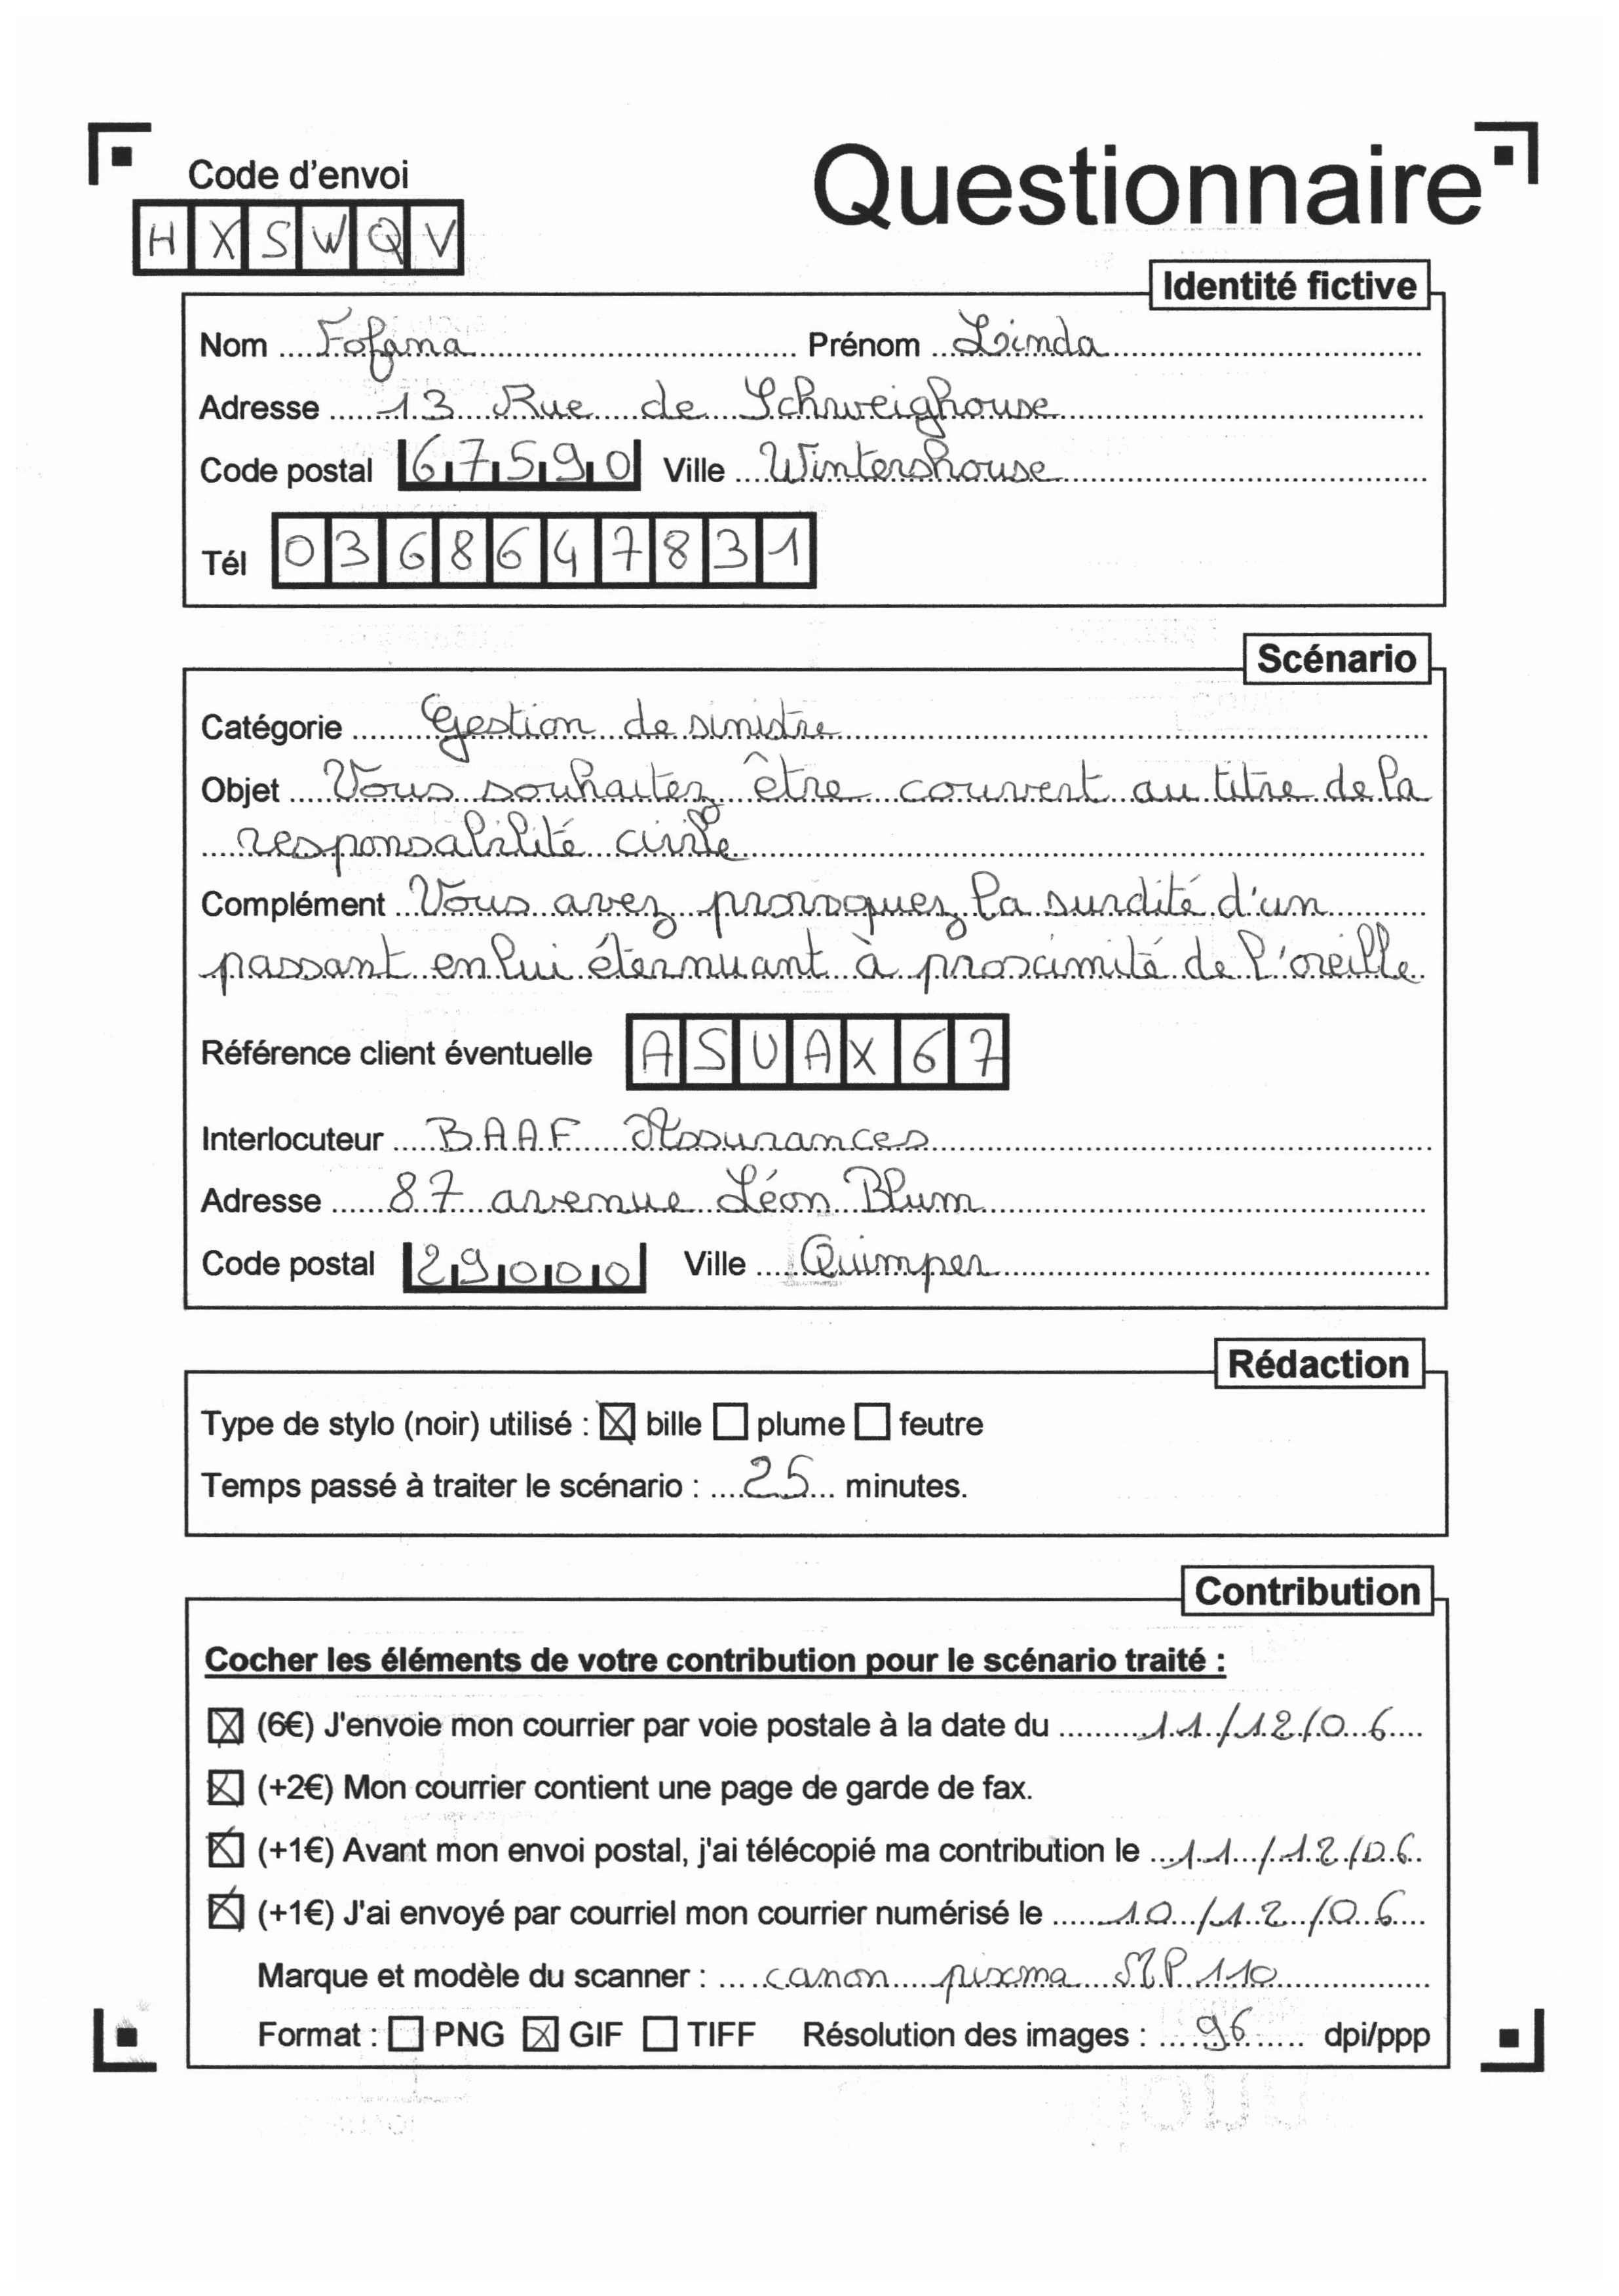 Code d'envoi
Questionnaire
H X S W Q V
Identité fictive
Nom Fofana Prénom Linda
Adresse 13 Rue de Schweighouse
Code postal 67590 Ville Wintershouse
Tél 0368647831
Scénario
Catégorie Gestion de sinistre
Objet Vous souhaitez être couvert au titre de la
responsabilité civile
Complément Vous avez provoquez la surdité d'un
passant en lui éternuant à proximité de l'oreille
Référence client éventuelle ASUAX67
Interlocuteur BAAF Assurances
Adresse 87 avenue Léon Blum
Code postal 29000 Ville Quimper
Rédaction
Type de stylo (noir) utilisé : ☒ bille ☐ plume ☐ feutre
Temps passé à traiter le scénario : 25 minutes.
Contribution
Cocher les éléments de votre contribution pour le scénario traité :
☒ (6€) J'envoie mon courrier par voie postale à la date du 11/12/06
☒ (+2€) Mon courrier contient une page de garde de fax.
☒ (+1€) Avant mon envoi postal, j'ai télécopié ma contribution le 11/12/06
☒ (+1€) J'ai envoyé par courriel mon courrier numérisé le 10/12/06
Marque et modèle du scanner : canon pixma MP 110
Format : ☐ PNG ☒ GIF ☐ TIFF Résolution des images : 96 dpi/ppp